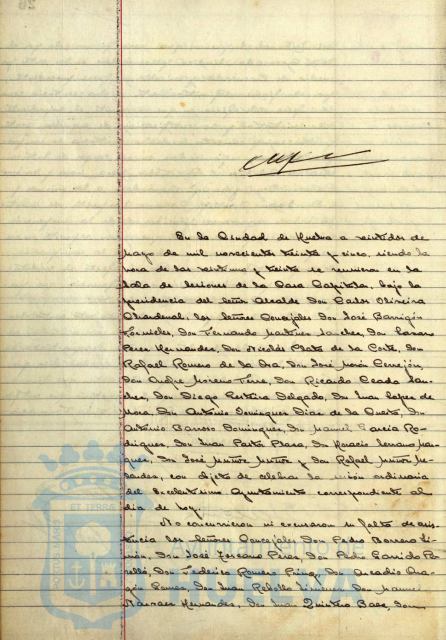 En la Ciudad de Huelva a veintidos de
Mayo de mil novecientos treinta y cinco, siendo la
hora de las veintiuna y treinta se reunieron en la
Sala de sesiones de la Casa Capitular, bajo la
presidencia del señor Alcalde Don Carlos Oliveira
Chardenal, los señores Concejales Don José Barrigón
Fornieles, Don Fernando Martinez Sanchez, Don Lazaro
Perez Hernandez, Don Nicolás Prats de la Corte, Don
Rafael Romero de la Osa, Don José Morón Cerrejón,
Don André Moreno Don Ricardo
Don Diego Delgado, Don Juan Lopez de
Mora, Don Antonio Dominguez Diaz de la Don
Antonio Barroso Dominguez, Don Manuel Garcia Ro-
driguez, Don Juan Pastor Don Horacio Ma-
quez, Don José Muñoz Muñoz y Don Rafael Muñoz
con objeto de celebrar la sesión ordinaria
del Excelentísimo Ayuntamiento correspondiente al
día de hoy.
No concurrieron ni excusaron su falta de asis-
tencia los señores Concejales Don Pedro Borrero Li-
món, Don José Toscano Perez, Don Pedro Garrido Pe-
relló, Don Federico Romero Don Arcadio Ara-
gón Gomez, Don Juan Rebollo Jimenez, Don Manuel
Narvaez Hernandez, Don Juan Quintero Baez, Don
ET TERRÆ